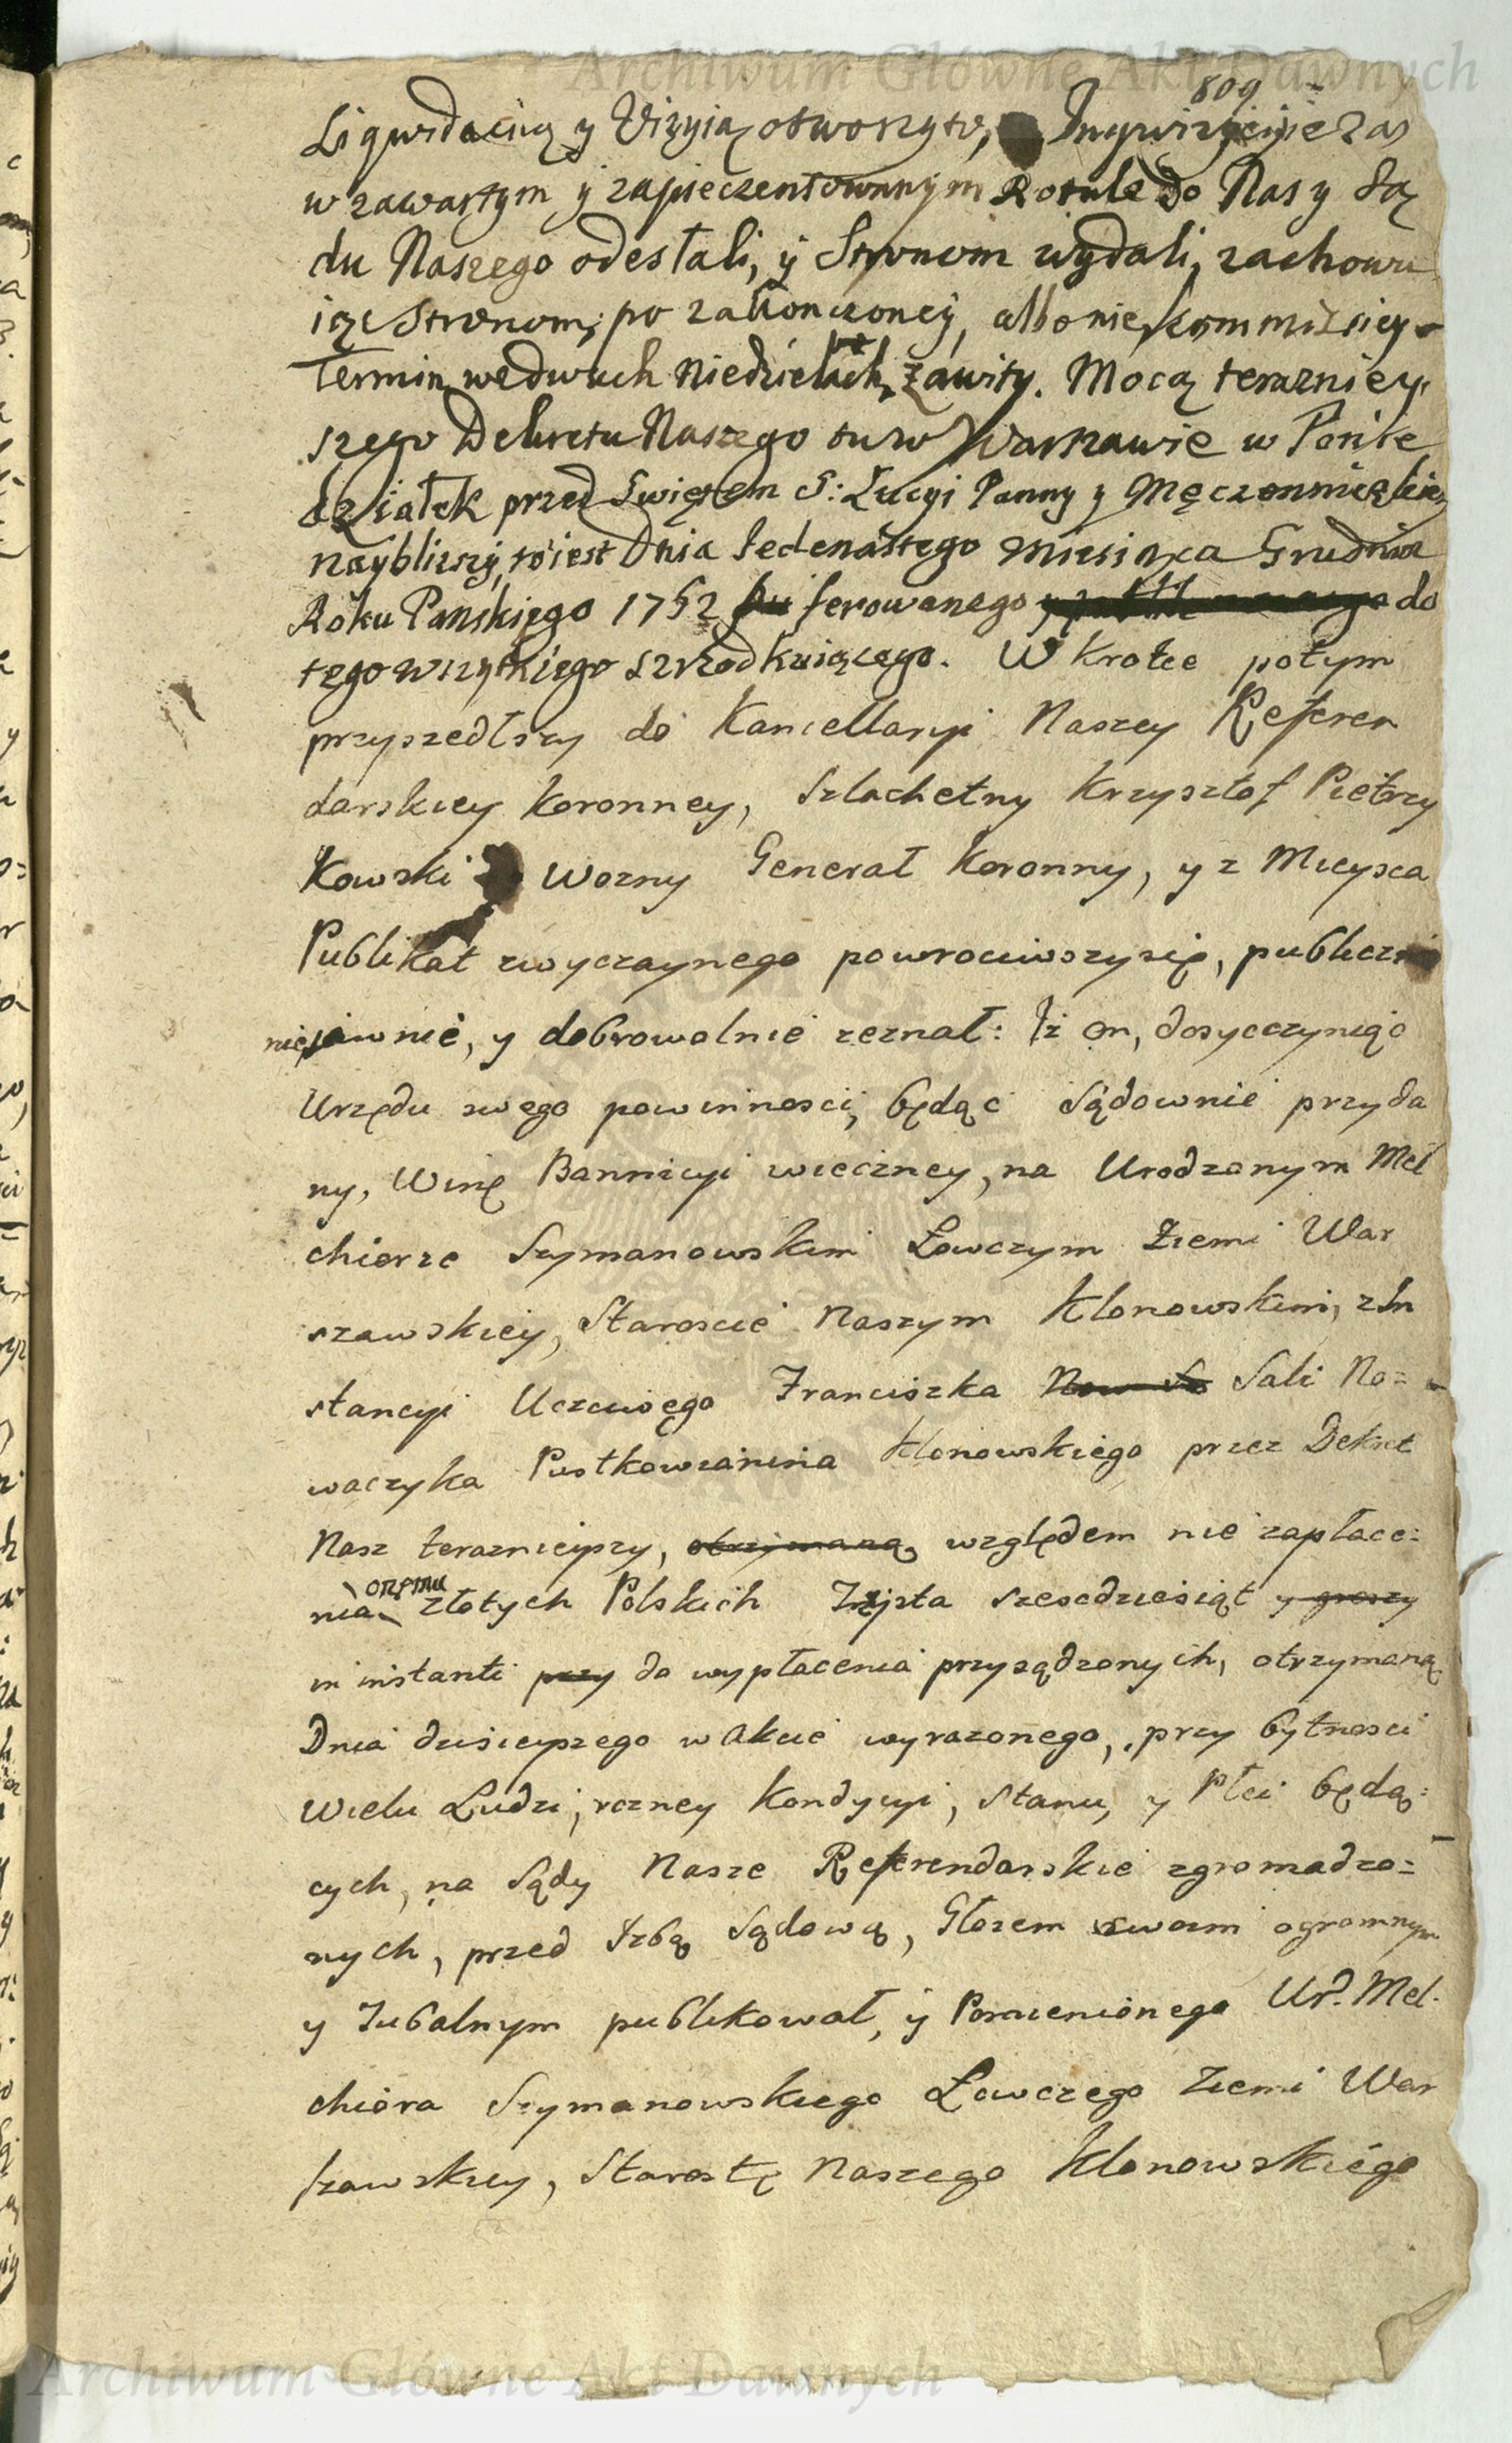 Archiwum Główne Akt Dawnych
809
Liqwidacią y Wizyią otworzyto, Inqwizycyie zas
w zawartym y zapieczentowanym Rotule do Nas y Są
du Naszego odesłali, y Stronom wydali, zachowu
iąc Stronom, po zakonczoney, albo nie, kommissiey
Termin we dwuch Niedzielach, zawity. Mocą terazniey
szego Dekretu Naszego tu w Warszawie w Ponie
działek przed Swiętem S: Lucyi Panny y Męczenniczkiey
nayblizszy, to iest Dnia Jedenastego Miesiąca Grudnia
Roku Panskiego 1752 ferowanego do
tego wszytkiego szrzodkuiącego. W krotce potym
przyszedłszy do Kancellaryi Naszey Referen
darskiey Koronney, Szlachetny Krzysztof Pietrzy
Kowski Wozny Generał Koronny, y z Mieysca
Publikat zwyczaynego powrociwszy się, publicz
nie, jawnie, y dobrowolnie zeznał: Iz on, dosyc czyniąc
Urzędu swego powinnosci, będąc Sądownie przyda
ny, Winę Bannicyi wieczney, na Urodzonym Mel
chierze Szymanowskim Łowczym Ziemi War
szawskiey, Staroscie Naszym Klonowskim, z In
stancyi Uczciwego Franciszka Sali No=
waczyka Pustkowianina Klonowskiego przez Dekret
Nasz teraznieyszy, otrzymaną, względem nie zapłace=
nia onemu złotych Polskich Trzysta szescdziesiąt y groszy
in instanti przy do wypłacenia przysądzonych, otrzymaną
Dnia dzisieyszego w Akcie wyrazonego, przy bytnosci
Wielu Ludzi, rozney Kondycyi, Stanu, y Płci będą=
cych, na Sądy Nasze Referendarskie zgromadzo=
nych, przed Izbą Sądową, Głosem swoim ogromnym
y Jubalnym publikował, y Pomienionego Ur. Mel.
chiora Szymanowskiego Łowczego Ziemi War
szawskiey, Starostę Naszego Klonowskiego
Archiwum Główne Akt Dawnych